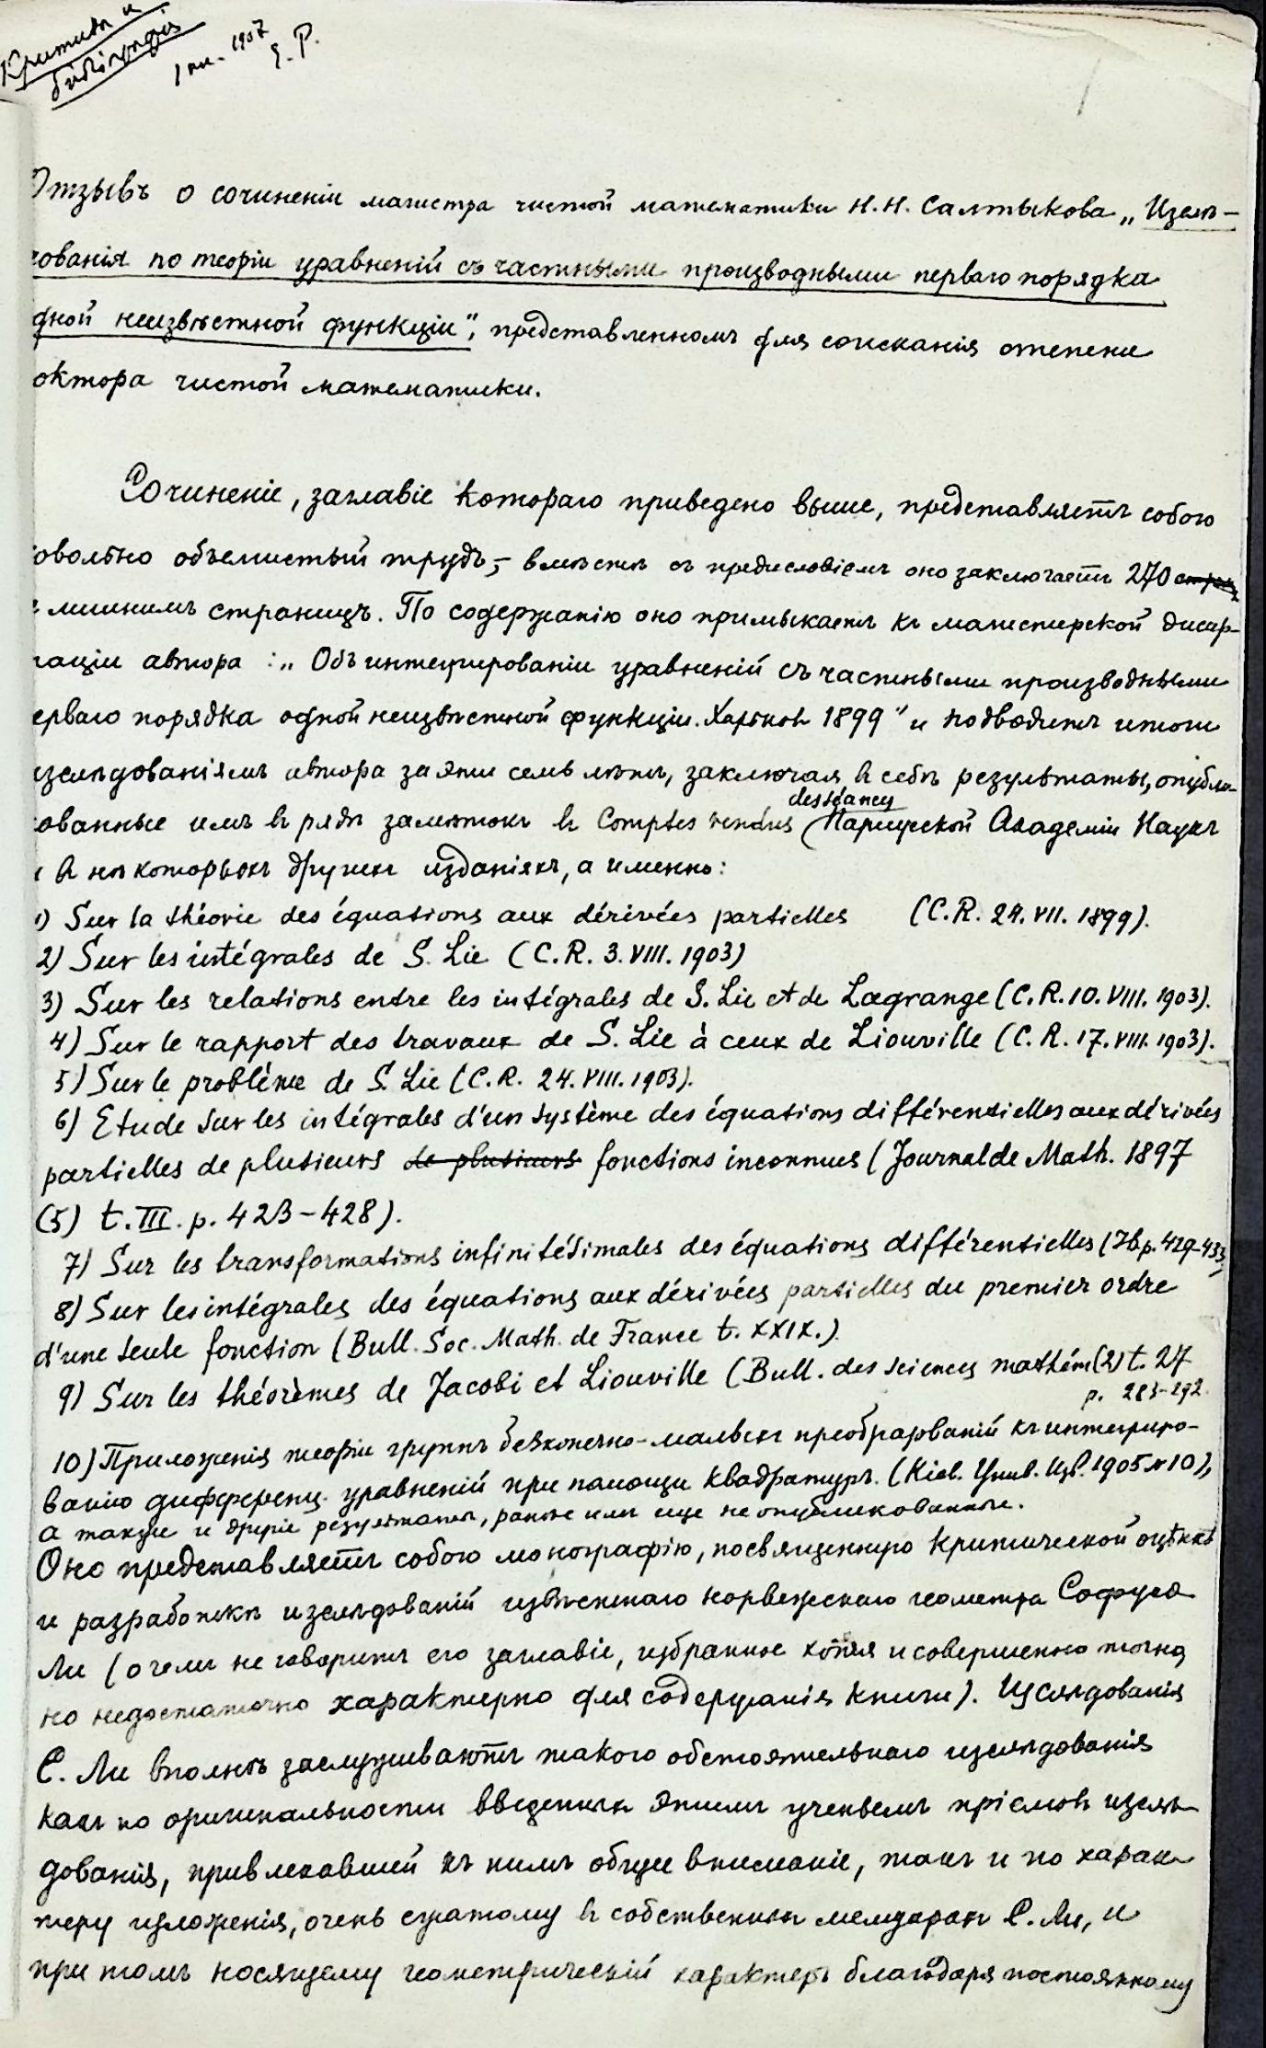 Критика и
библіографія
1907
Отзывъ о сочиненіи магистра чистой математики Н.Н. Салтыкова „Изслѣ-
дованія по теоріи уравненій съ частными производными перваго порядка
одной неизвѣстной функціи", представленномъ для соисканія степени
доктора чистой математики.
Сочиненіе, заглавіе котораго приведено выше, представляетъ собою
довольно объемистый трудъ,– вмѣстѣ съ предисловіемъ оно заключаетъ 270 стран
съ лишнимъ страницъ. По содержанію оно примыкаетъ къ магистерской дисер-
таціи автора: „Объ интегрированіи уравненій съ частными производными
перваго порядка одной неизвѣстной функціи. Харьковъ 1899" и подводитъ итоги
изслѣдованіямъ автора за эти семь лѣтъ, заключая въ себѣ результаты, опубли-
кованные имъ въ рядѣ замѣтокъ въ Comptes rendus des séances Парижской Академіи Наукъ
и въ нѣкоторыхъ другихъ изданіяхъ, а именно:
1) Sur la théorie des équations aux dérivées partielles (C.R. 24. VII. 1899).
2) Sur les intégrales de S. Lie (C.R. 3. VIII. 1903)
3) Sur les relations entre les intégrales de S. Lie et de Lagrange (C.R. 10. VIII. 1903).
4) Sur le rapport des travaux de S. Lie à ceux de Liouville (C.R. 17. VIII. 1903).
5) Sur le problème de S. Lie (C.R. 24. VIII. 1903).
6) Etude sur les intégrales d'un système des équations différentielles aux dérivées
partielles de plusieurs de plusieurs fonctions inconnues (Journal de Math. 1897
(5) t. III. p. 423–428).
7) Sur les transformations infinitésimales des équations différentielles (Ib. p. 429–433)
8) Sur les intégrales des équations aux dérivées partielles du premier ordre
d'une seule fonction (Bull. Soc. Math. de France t. XXIX.)
9) Sur les théorèmes de Jacobi et Liouville (Bull. des sciences mathém (2) t. 27
p. 283–292.
10) Приложенія теоріи группъ безконечно-малыхъ преобразованій къ интегриро-
ванію диференц. уравненій при помощи квадратуръ. (Кіев. Унив. Изв. 1905 № 10),
а также и другіе результаты, ранѣе имъ еще не опубликованные.
Оно представляетъ собою монографію, посвященную критической оцѣнкѣ
и разработкѣ изслѣдованій извѣстнаго норвежскаго геометра Софуса
Ли (о чемъ не говоритъ его заглавіе, избранное хотя и совершенно точно,
но недостаточно характерно для содержанія книги). Изслѣдованія
С. Ли вполнѣ заслуживаютъ такого обстоятельнаго изслѣдованія
какъ по оригинальности введенныхъ этимъ ученымъ пріемовъ изслѣ-
дованія, привлекавшей къ нимъ общее вниманіе, такъ и по харак-
теру изложенія, очень сжатому въ собственныхъ мемуарахъ С. Ли, и
при томъ носящему геометрическій характеръ благодаря постоянному